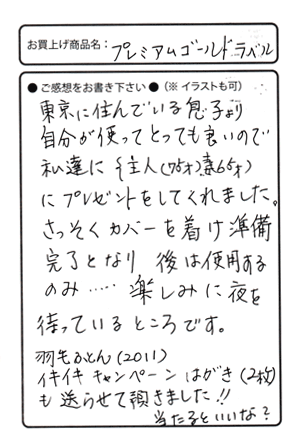 お買上げ商品名: プレミアムゴールドラベル
● ご感想をお書き下さい ● (※ イラストも可)
東京に住んでいる息子より
自分が使ってとっても良いので
私達に {主人(75才)妻65才}
にプレゼントをしてくれました。
さっそくカバーを着け準備
完了となり 後は使用する
のみ…… 楽しみに夜を
待っているところです。
羽毛ふとん(2011)
イキイキ キャンペーン はがき(2枚)
も送らせて頂きました!!
当たるといいな?